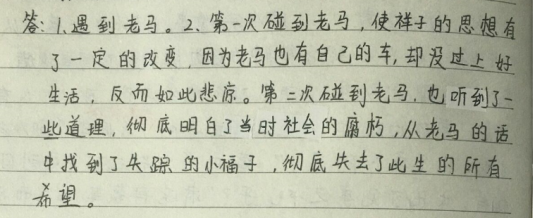 答：1、遇到老马。2、第一次碰到老马，使祥子的思想有
了一定的改变，因为老马也有自己的车，却没过上好
生活，反而如此悲凉。第二次碰到老马，也听到了一
些道理，彻底明白了当时社会的腐朽，从老马的话
中找到了失踪的小福子，彻底失去了此生的所有
希望。